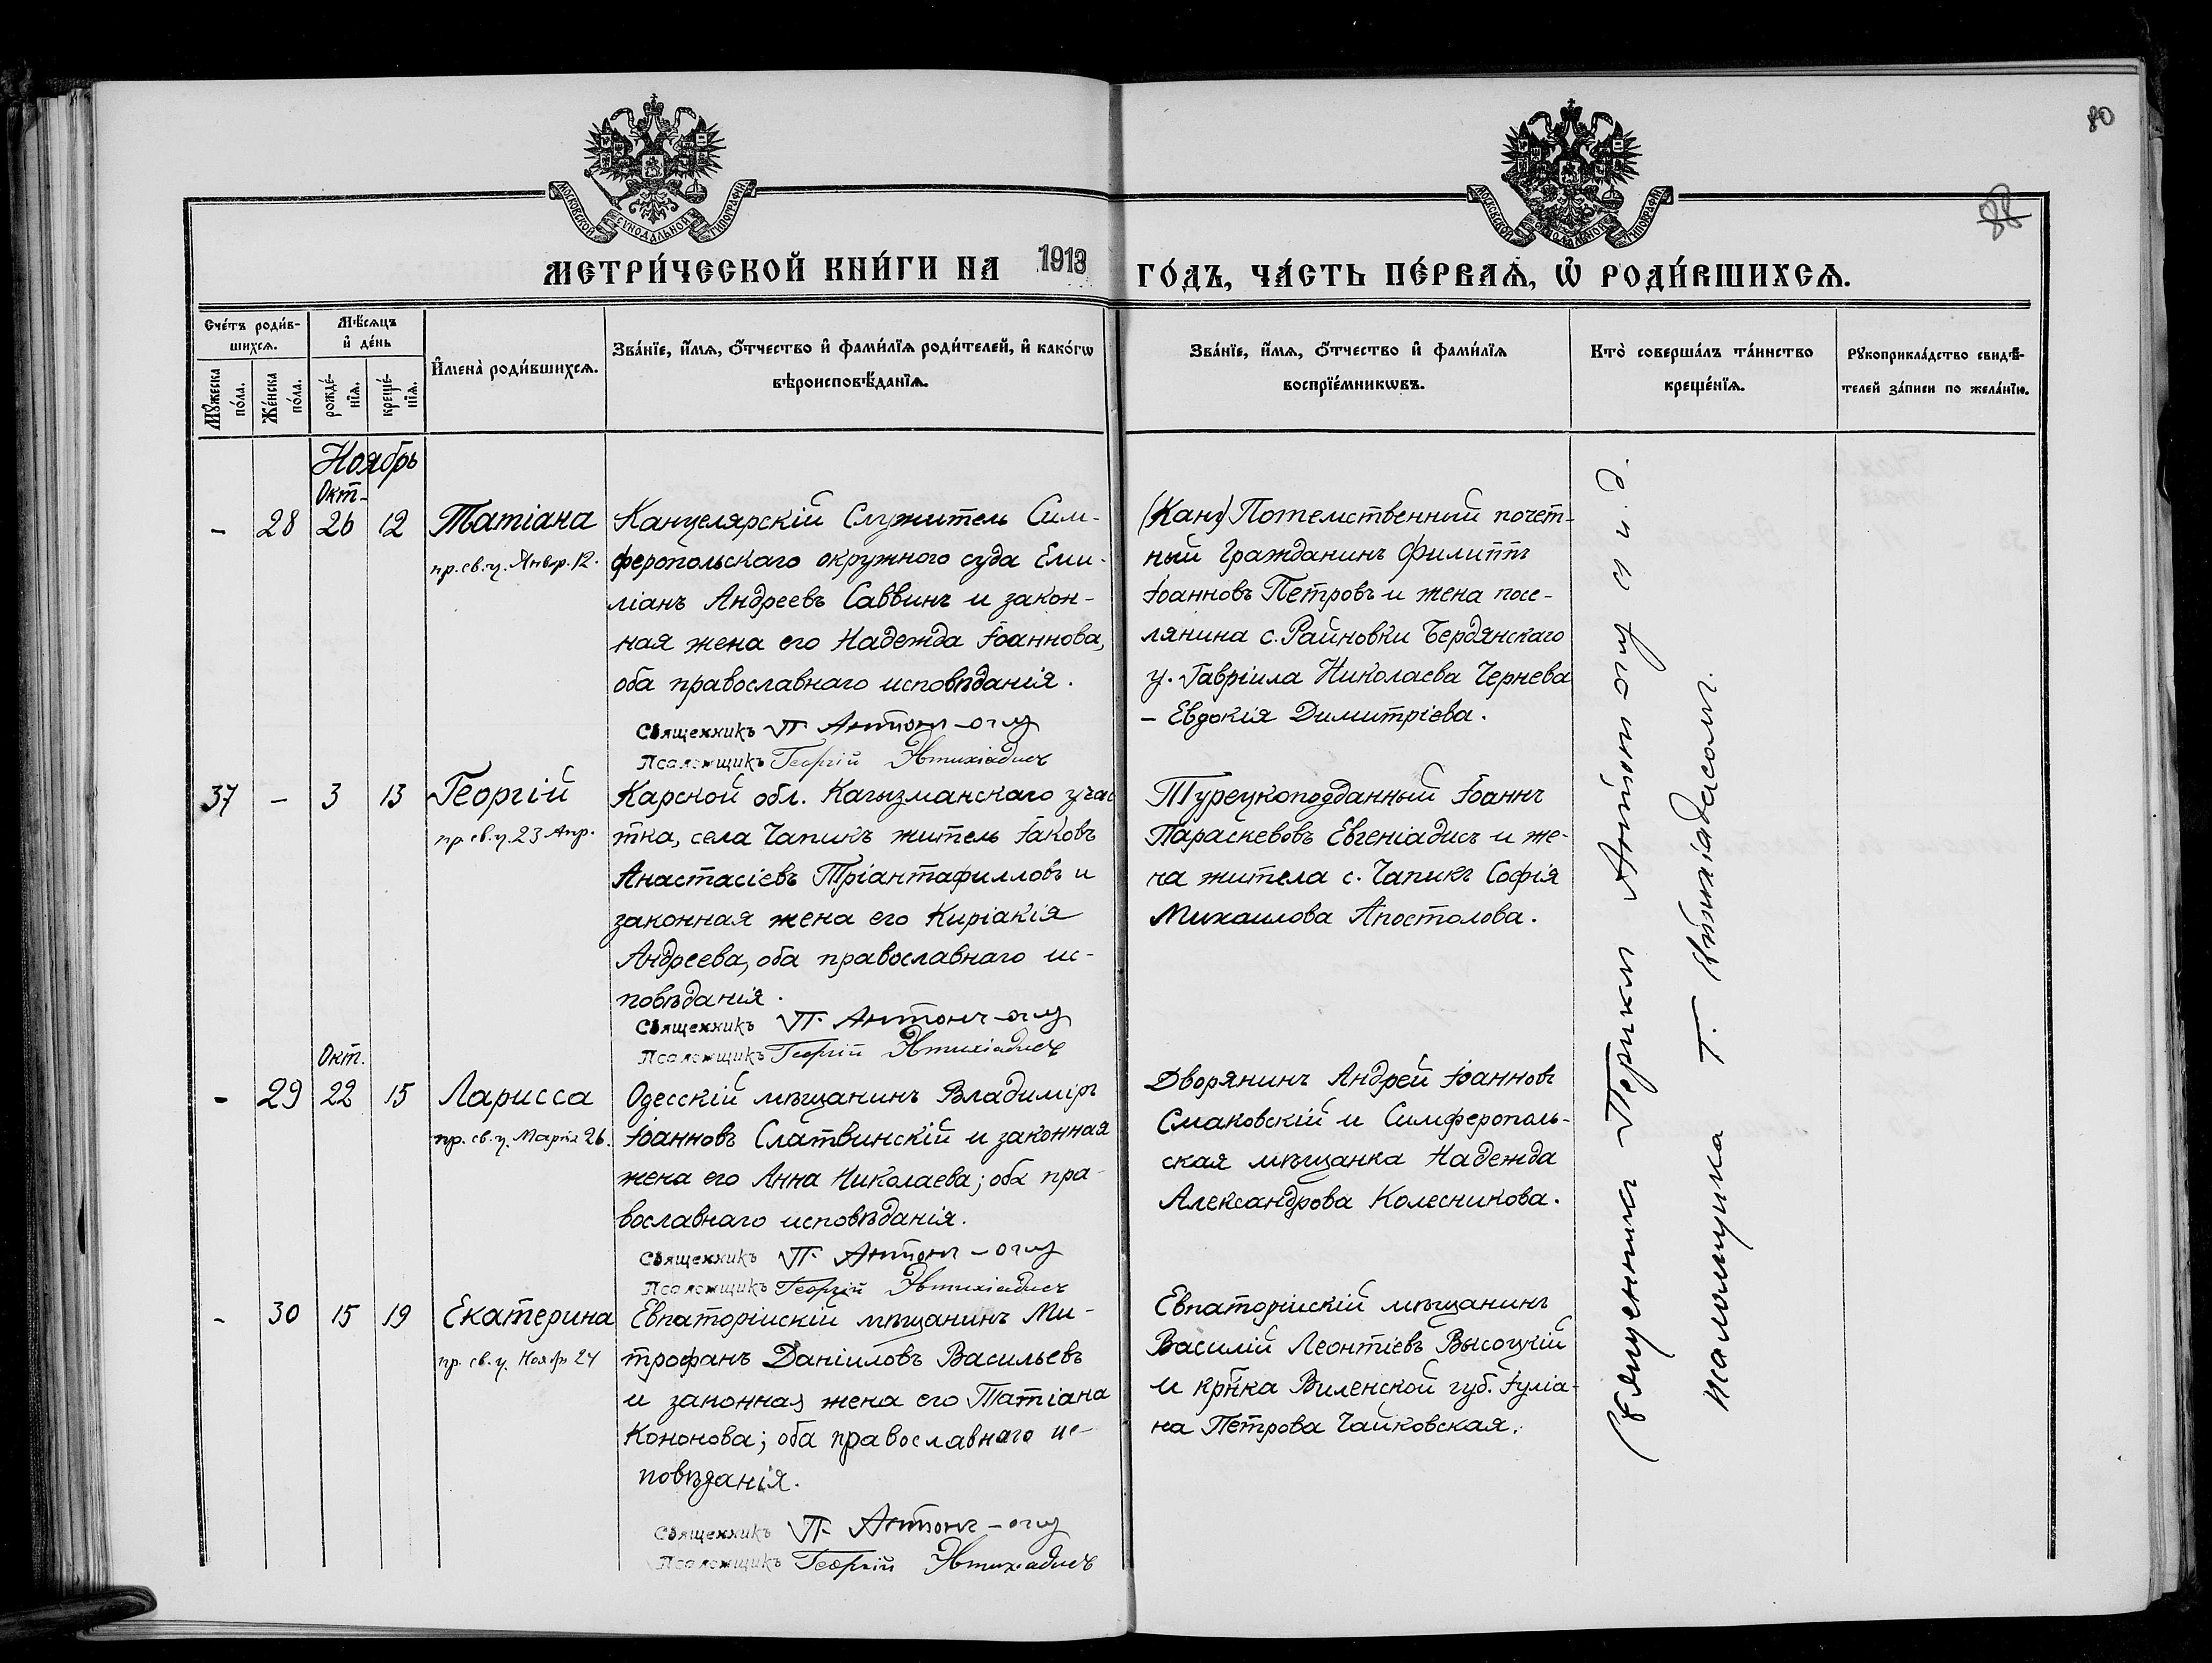 80
МОСКОВСКОЙ СѴНОДАЛЬНОЙ ТИПОГРАФІИ
МОСКОВСКОЙ СѴНОДАЛЬНОЙ ТИПОГРАФІИ
МЕТРИ́ЧЕСКОЙ КНИ́ГИ НА 1913 ГО́ДЪ, ЧА́СТЬ ПЕ́РВАѦ, Ѡ҆ РОДИ́ВШИХСѦ.
Сче́тъ роди́в-
шихсѧ.
Мꙋ́жеска
по́ла.
Же́нска
по́ла.
Мѣ́сѧцъ
и҆ де́нь
рожде́-
нїѧ.
креще́-
нїѧ.
И҆мена̀ роди́вшихсѧ.
Зва́нїе, и҆́мѧ, ѻ҆́тчество и҆ фами́лїѧ роди́телей, и҆ како́гѡ
вѣроисповѣ́данїѧ.
Зва́нїе, и҆́мѧ, ѻ҆́тчество и҆ фами́лїѧ
воспрїе́мникѡвъ.
Кто̀ соверша́лъ та́инство
креще́нїѧ.
Рꙋкоприкла́дство свидѣ́-
телей за́писи по жела́нїю.
Ноябрь
Окт-
- 28 26 12 Татіана
пр. св. ц. Январ. 12.
Канцелярскій Служитель Сим-
феропольскаго окружного суда Еми-
ліанъ Андреевъ Саввинъ и закон-
ная жена его Надежда Іоаннова,
оба православнаго исповѣданія.
Священникъ П. Антонъ-оглу
Псаломщикъ Георгій Эвтихіадисъ
Потомственный почет-
ный Гражданинъ Филиппъ
Іоанновъ Петровъ и жена посе-
лянина с. Райновки Бердянскаго
у. Гавріила Николаева Чернева
- Евдокія Димитріева.
37 - 3 13 Георгій
пр. св. ц. 23 Апр.
Карской обл. Кагызманскаго учас
тка, села Чапикъ житель Іаковъ
Анастасіевъ Тріантафилловъ и
законная жена его Киріакія
Андреева, оба православнаго ис-
повѣданія.
Священникъ П. Антонъ-оглу
Псаломщикъ Георгій Эвтихіадисъ
Турецкоподданный Іоаннъ
Параскевовъ Евгеніадисъ и же-
на жителя с. Чапикъ Софія
Михаилова Апостолова.
Окт.
- 29 22 15 Ларисса
пр. св. ц. Марта 26.
Одесскій мѣщанинъ Владиміръ
Іоанновъ Слатвинскій и законная
жена его Анна Николаева; оба пра-
вославнаго исповѣданія.
Священникъ П. Антонъ-оглу
Псаломщикъ Георгій Эвтихіадисъ
Дворянинъ Андрей Іоанновъ
Смаковскій и Симферополь-
ская мѣщанка Надежда
Александрова Колесникова.
- 30 15 19 Екатерина
пр. св. ц. Ноябр 24
Евпаторійскій мѣщанинъ Ми-
трофанъ Даніиловъ Васильевъ
и законная жена его Татіана
Кононова; оба православнаго ис-
повѣданія.
Священникъ П. Антонъ-оглу
Псаломщикъ Георгій Эвтихіадисъ
Евпаторійскій мѣщанинъ
Василій Леонтіевъ Высоцкій
и кр-нка Виленской губ. Іуліа-
на Петрова Чайковская.
Священникъ Периклъ Антонъ оглу и и. д.
псаломщика Г. Эвтихіадисомъ.